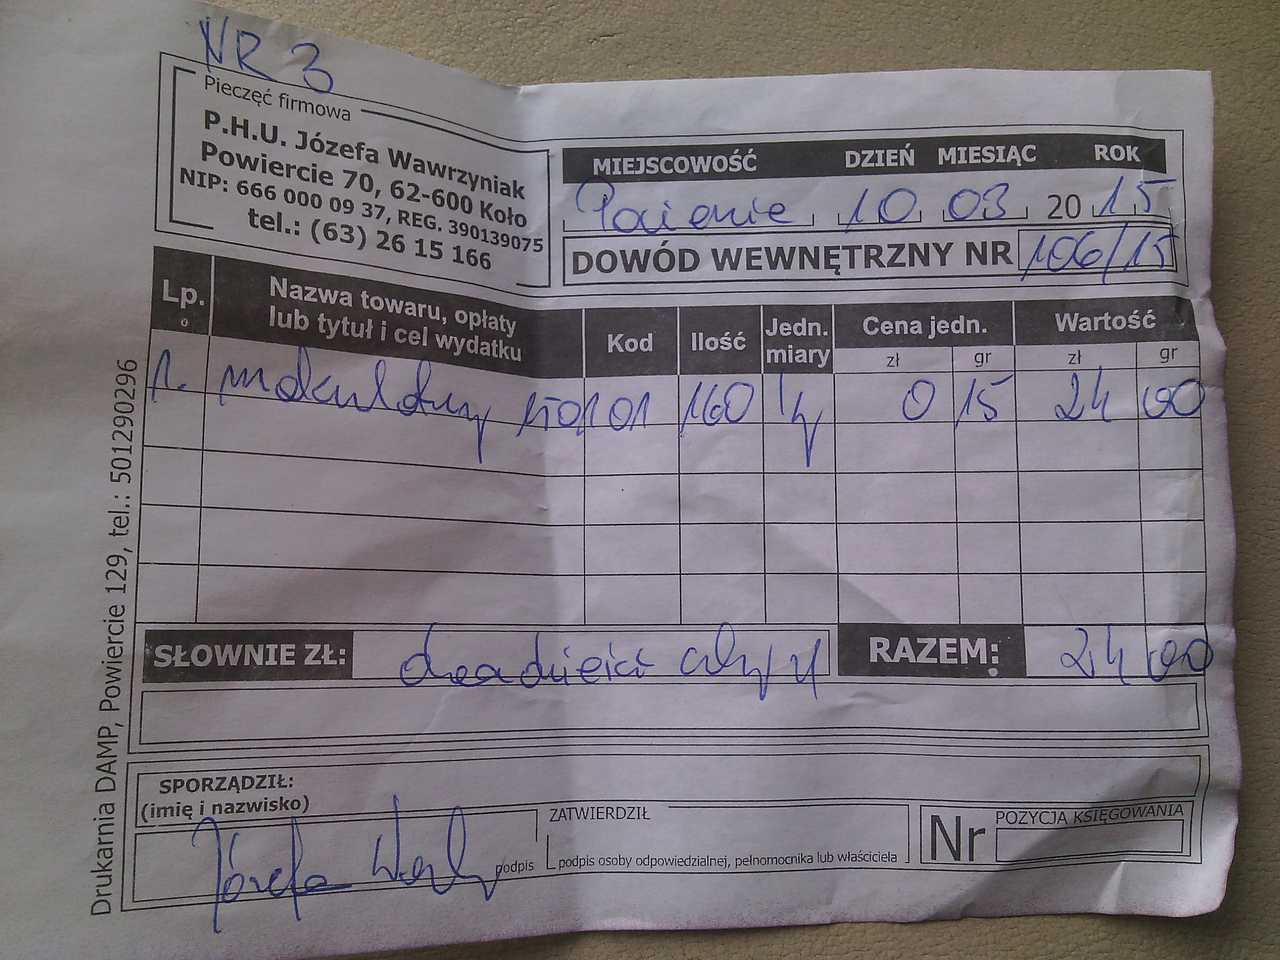 NR 3
Pieczęć firmowa
P.H.U. Józefa Wawrzyniak
Powiercie 70, 62-600 Koło
NIP: 666 000 09 37, REG. 390139075
tel.: (63) 26 15 166
MIEJSCOWOŚĆ DZIEŃ MIESIĄC ROK
10 03 2015
DOWÓD WEWNĘTRZNY NR 106/15
Lp. Nazwa towaru, opłaty lub tytuł i cel wydatku Kod Ilość Jedn. miary Cena jedn. zł gr Wartość zł gr
1. makulatury 150101 160 kg 0 15 24 00
SŁOWNIE ZŁ: dwadzieścia cztery zł RAZEM: 24 00
SPORZĄDZIŁ:
(imię i nazwisko)
Józefa
podpis
ZATWIERDZIŁ
podpis osoby odpowiedzialnej, pełnomocnika lub właściciela
Nr POZYCJA KSIĘGOWANIA
Drukarnia DAMP, Powiercie 129, tel.: 501290296